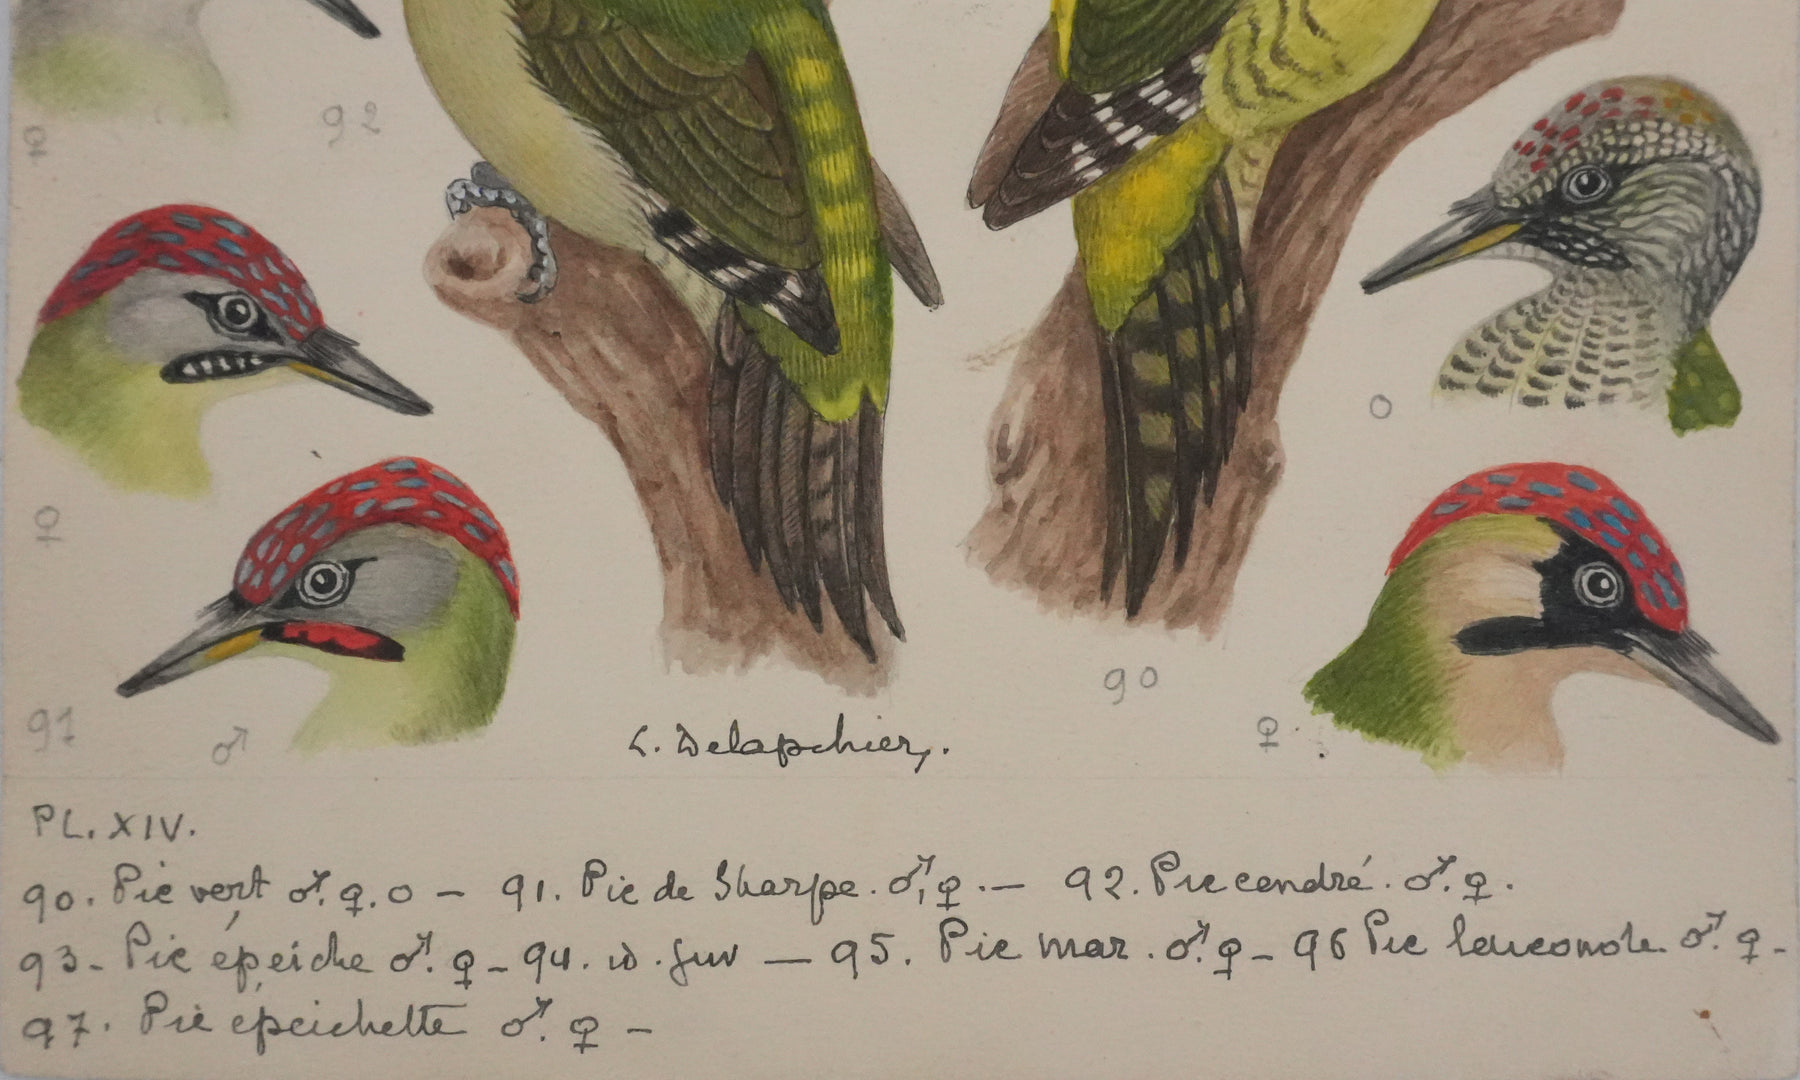 ♀
92
♀
○
91
♂
L. Delapchier.
90
♀
PL. XIV.
90. Pic vert ♂. ♀. ○ – 91. Pic de Sharpe. ♂, ♀. – 92. Pic cendré. ♂. ♀.
93 - Pic épeiche ♂. ♀ - 94. id. juv — 95. Pic mar. ♂. ♀ - 96 Pic leuconote ♂. ♀ -
97. Pic épeichette ♂. ♀ -